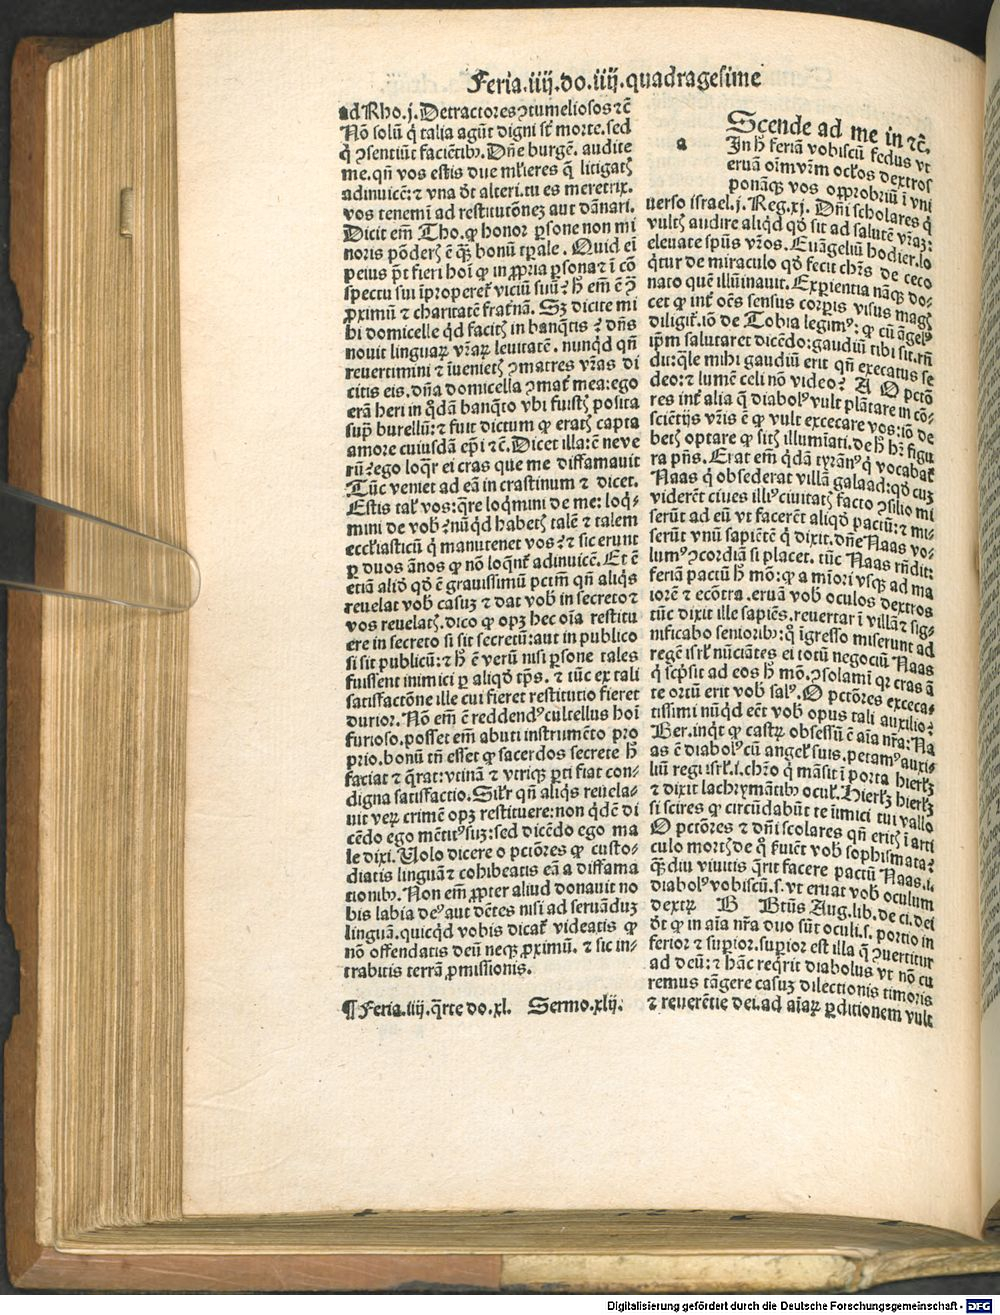 Feria.iiij.do.iiij.quadragesime
ad Rho.j. Detractores ꝯtumeliosos ⁊c̄
Nō solū q̇ talia agūt digni sūt morte. sed
q̇ ꝯsentiūt faciētibꝰ. Dn̄e burgēn. audite
me. qn̄ vos estis due mĺieres q̄ litigatꝭ
adinuicē: ⁊ vna dr̄t alteri. tu es meretrix.
vos tenemī ad restitutōneꝫ aut dānari.
Dicit em̄ Tho. ꝙ honor ꝑsone non mi
noris pōderꝭ ē qꝫ bonū tꝑale. Quid eī
peius pt̄ fieri hoī ꝙ in ꝓpria ꝑsona ⁊ ī cō
spectu sui īproperet̄ viciū suū? h̄ em̄ ē ꝯ̄
ꝓximū ⁊ charitatē frat̄nā. Sꝫ dicite mi
hi domicelle qd̄ facitꝭ in banq̄tis? dn̄s
nouit linguaꝝ vr̄aꝝ leuitatē. nunqd̄ qn̄
reuertimini ⁊ īuenietꝭ ꝯmatres vr̄as di
citis eis. dn̄a domicella ꝯmat̄ mea: ego
erā heri in q̇dā banq̄to vbi fuistꝭ posita
suꝑ burellū: ⁊ fuit dictum ꝙ eratꝭ capta
amore cuiusdā epī ⁊c̄. Dicet illa: ē neve
rū? ego loq̄r ei cras que me diffamauit
Tūc veniet ad eā in crastinum ⁊ dicet.
Estis tal̄ vos: q̄re loq̄mini de me: loq̄-
mini de vob̄? nūqd̄ habetꝭ talē ⁊ talem
ecclīasticū q̇ manutenet vos? ⁊ sic erunt
ꝑ duos ānos ꝙ nō loq̄nt̄ adinuicē. Et ē
etiā aliḋ qḋ ē grauissimū pctm̄ qn̄ aliq̇s
reuelat vob̄ casuꝫ ⁊ dat vob̄ in secreto ⁊
vos reuelatꝭ. dico ꝙ opꝫ hec oīa restitu
ere in secreto si sit secretū: aut in publico
si sit publicū: ⁊ h̄ ē verū nisi ꝑsone tales
fuissent inimici ꝑ aliqḋ tp̄s. ⁊ tūc ex tali
satisfactōne ille cui fieret restitutio fieret
durior. Nō em̄ ē reddendꝰ cultellus hoī
furioso. posset em̄ abuti instrumēto pro
prio. bonū tn̄ esset ꝙ sacerdos secrete h̄
faciat ⁊ q̄rat: vtinā ⁊ vtriqꝫ ꝑti fiat con-
digna satisfactio. Sil̄r qn̄ aliq̇s reuela-
uit veꝝ crimē opꝫ restituere: non qd̄ē di
cēdo ego mētitꝰ suꝫ: sed dicēdo ego ma
le dixi. Uolo dicere o pctōres ꝙ custo-
diatis linguā ⁊ cohibeatis eā a diffama
tionibꝰ. Non em̄ ꝓpter aliud donauit no
bis labia deꝰ aut dētes nisi ad seruāduꝫ
linguā. quicqd̄ vobis dicat̄ videatis ꝙ
nō offendatis deū neqꝫ ꝓximū. ⁊ sic in-
trabitis terrā ꝓmissionis.
¶ Feria.iiij.q̄rte do.xl. Sermo.xlij.
a
Scende ad me in ⁊c̄.
In h̄ feriā vobiscū fedus vt
eruā oīm vr̄m ocl̄os dextros
ponāqꝫ vos opprobriū ī vni
uerso israel.j. Reg.xj. Dn̄i scholares q̇
vultꝭ audire aliqd̄ qḋ sit ad salutē vr̄aꝫ:
eleuate spūs vr̄os. Euāgeliū hodier. lo
q̇tur de miraculo qḋ fecit chr̄s de ceco
nato quē illūinauit. Experientia nāqꝫ do-
cet ꝙ int̄ oēs sensus corꝑis visus magꝭ
diligit̄. iō de Tobia legimꝰ: ꝙ cū āgelꝰ
ip̄m salutaret dicēdo: gaudiū tibi sit. rn̄
dit: q̄le mihi gaudiū erit qn̄ execatus se
deo: ⁊ lumē celi nō video? A O pctō
res int̄ alia q̄ diabolꝰ vult plātare in cō-
sciētijs vr̄is ē ꝙ vult excecare vos: iō de
betꝭ optare ꝙ sitꝭ illumīati. de h̄ hr̄ figu
ra pn̄s. Erat em̄ q̇dā tyrānꝰ q̇ vocabat̄
Naas q̇ obsederat villā galaad: qḋ cuꝫ
viderēt ciues illiꝰ ciuitatꝭ facto ꝯsilio mi
serūt ad eū vt facerēt aliqḋ pactū: ⁊ mi-
serūt vnū sapiētē q̇ dixit. dn̄e Naas vo-
lumꝰ ꝯcordiā si placet. tūc Naas rn̄dit:
feriam pactū h̄ mō: ꝙ a mīori vsqꝫ ad ma
iorē ⁊ ecōtra. eruā vob̄ oculos dextros
tūc dixit ille sapiēs. reuertar ī villā ⁊ sig-
nificabo senioribꝰ: q̇ īgresso miserunt ad
regē isrl̄ nūciātes ei totū negociū Naas
q̇ scp̄sit ad eos h̄ mō. ꝯsolamī qꝛ cras ā
te ortū erit vob̄ salꝰ. O pctōres exceca-
tissimi nūqd̄ eēt vob̄ opus tali auxilio?
Ber. inq̇t ꝙ castꝝ obsessū ē aīa nr̄a: Na
as ē diabolꝰ cū angel̄ suis. petamꝰ auxi-
liū regi isrl̄.i. chr̄o q̇ māsit ī porta hierl̄ꝫ
⁊ dixit lachrymātibꝰ ocul̄. Hierl̄ꝫ hierl̄ꝫ
si scires ꝙ circūdabūt te īimici tui vallo
O pctōres ⁊ dn̄i scolares qn̄ eritꝭ ī arti
culo mortꝭ de q̇ s̄uiēt vob̄ sophismata?
qꝫdiu viuitis q̄rit facere pactū Naas.i.
diabolꝰ vobiscū.s. vt eruat vob̄ oculum
dextꝝ B Btūs Aug. lib. de ci. dei
dr̄t ꝙ in aīa nr̄a duo sūt oculi.s. portio in
ferior ⁊ suꝑior. suꝑior est illa q̄ ꝯuertitur
ad deū: ⁊ hāc req̄rit diabolus vt nō cu
remus tāgere casuꝫ dilectionis timoris
⁊ reuerētie dei. ad aīaꝝ ꝑditionem vult
Digitalisierung gefördert durch die Deutsche Forschungsgemeinschaft - DFG